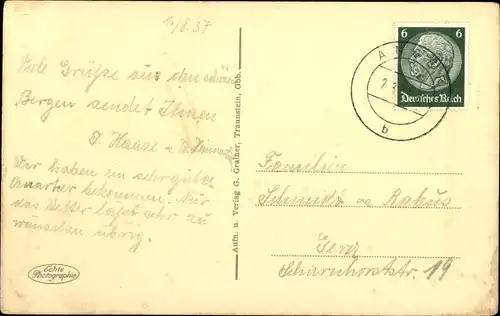 11/8.37
Viele Grüße aus den schönen
Bergen sendet Ihnen
J. Haase u.
Wir haben ein sehr gutes
Quartier bekommen. Nur
das Wetter läßt sehr zu
wünschen übrig.
Echte
Photographie
Aufn. u. Verlag G. Grainer, Traunstein, Obb.
6 6
Deutsches Reich
b
Familien
Schmidt
Gera
Scharnhorststr. 19